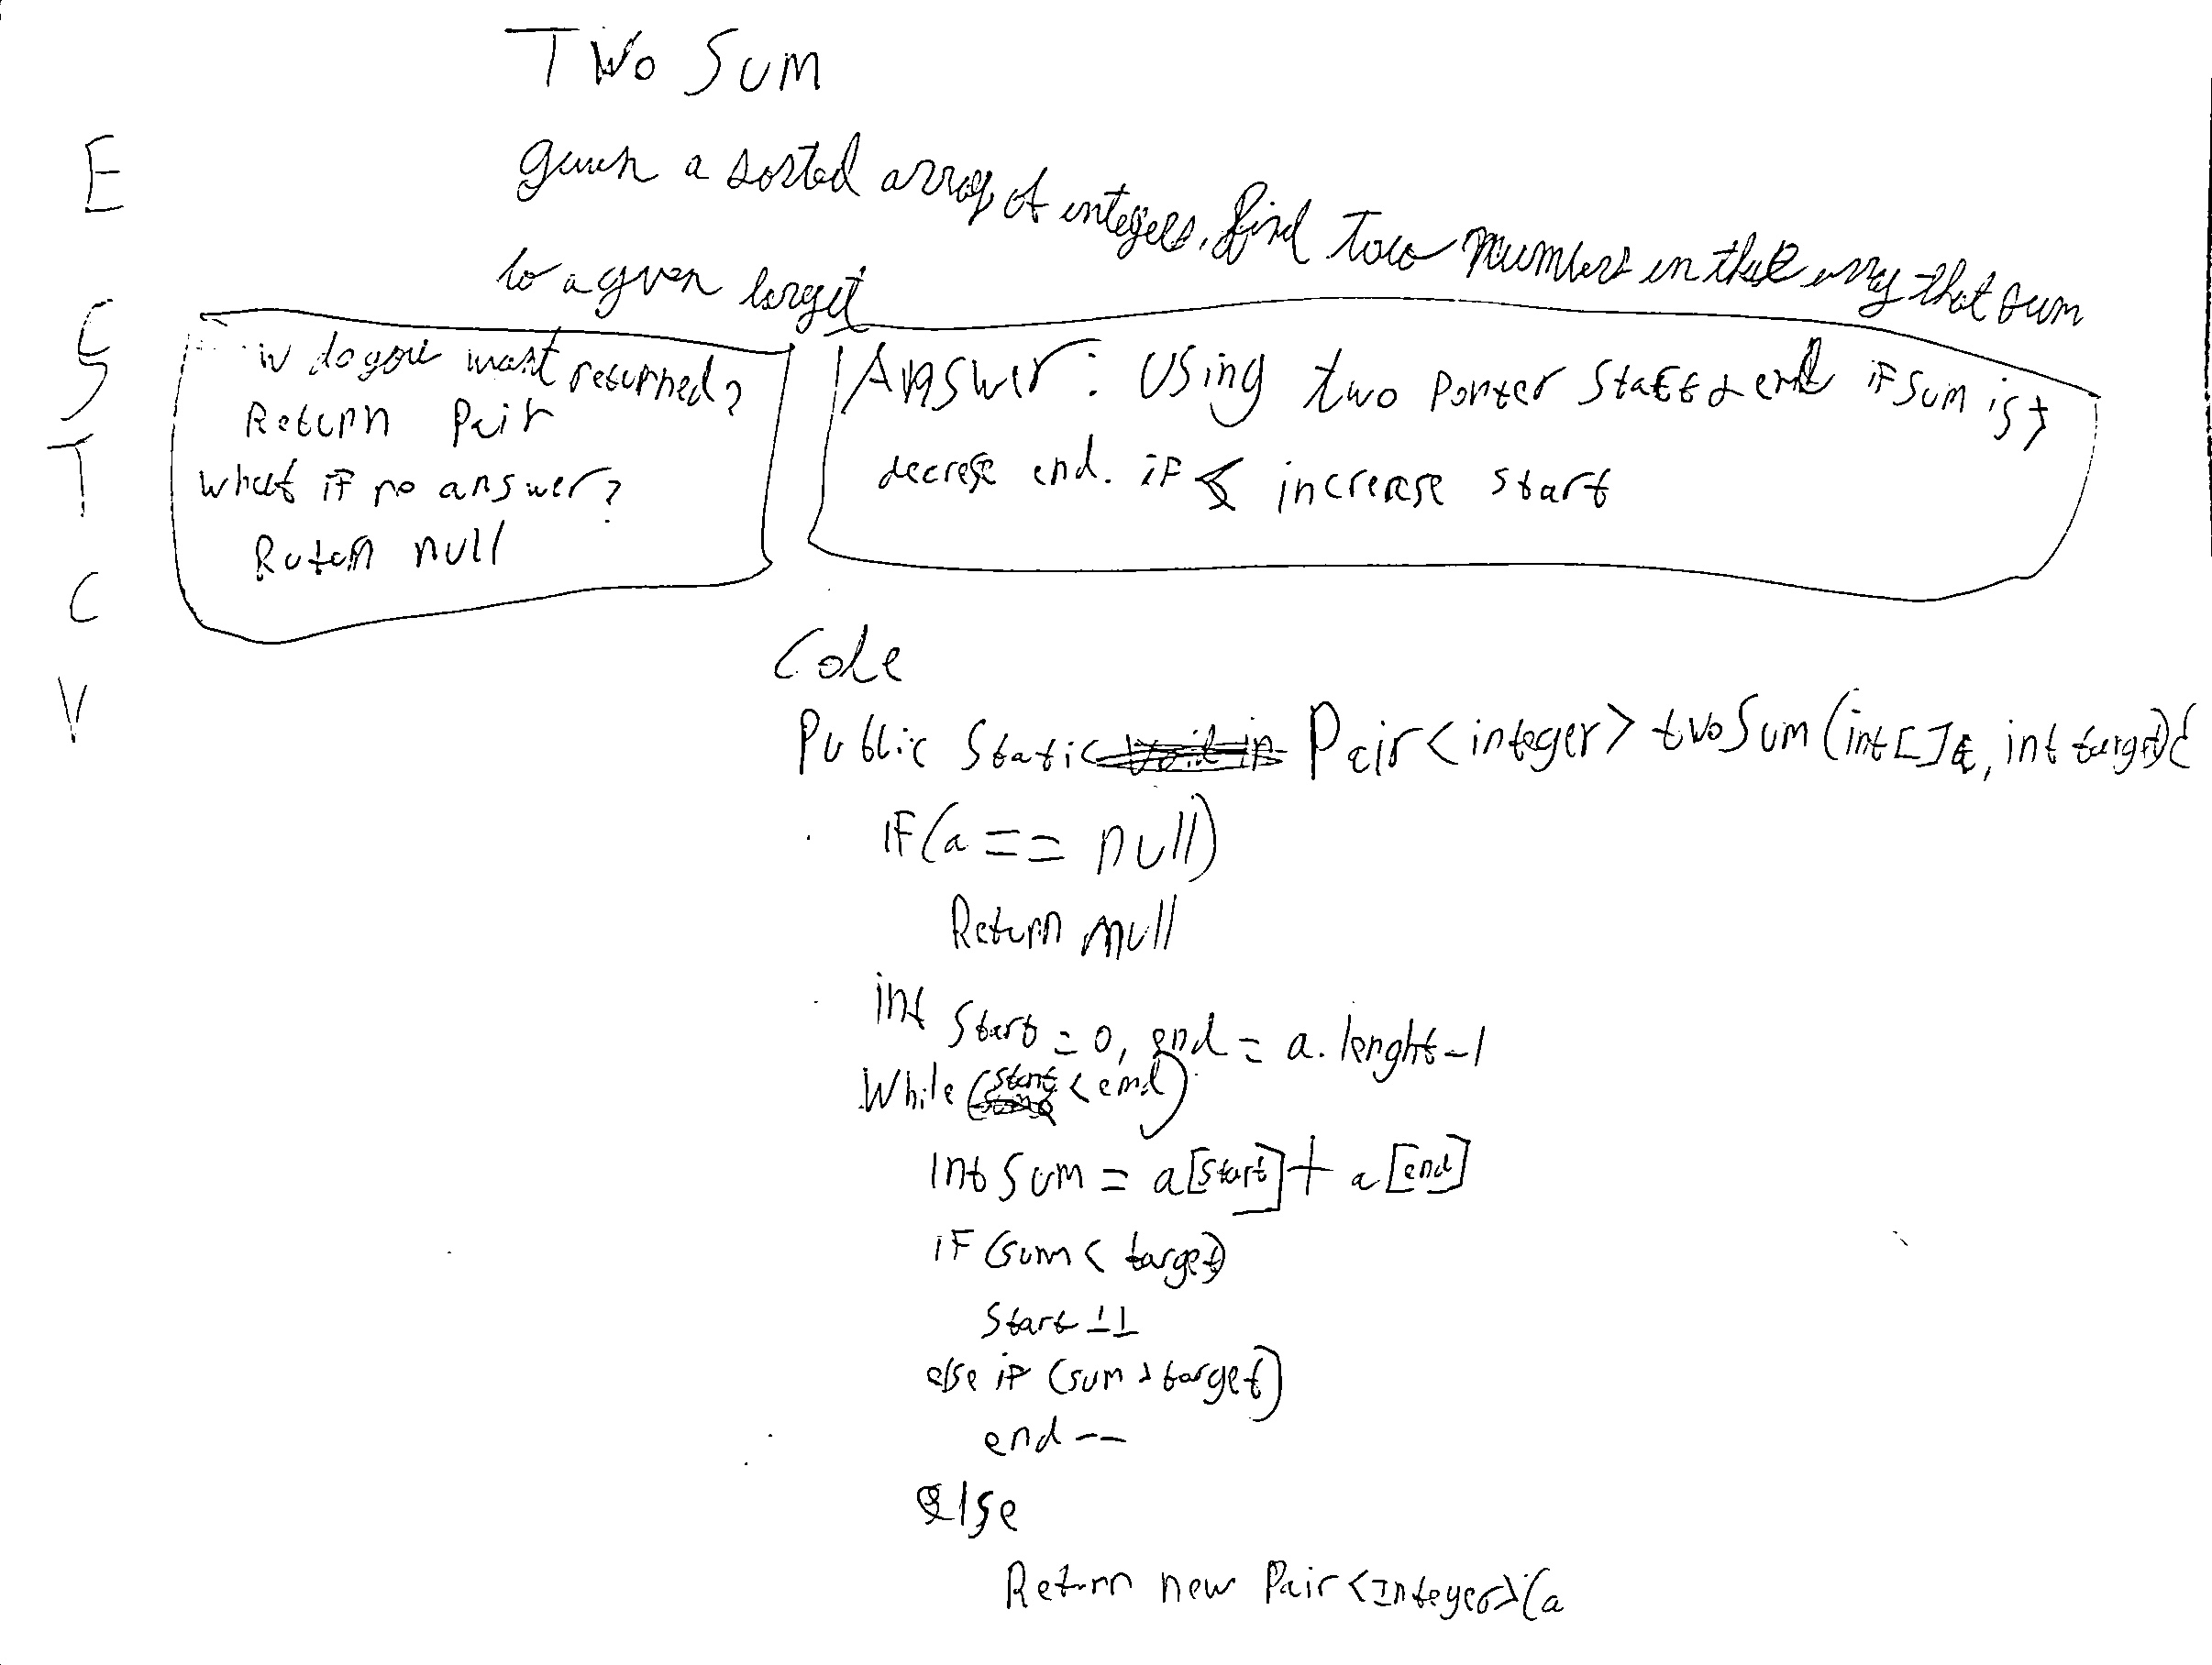 Two Sum
E
given a sorted array of integers, find two numbers in that array that sum
to a given target
C
S
T
C
V
do you want returned?
Return Pair
What if no answer?
Return null
Answer: Using two Ponter Start & end if sum is >
decrese end. if < increase start
Code
Public Static Pair<integer> twoSum(int[]a, int target){
if(a == null)
Return null
int Start = 0, end = a.lenght-1
While (start < end)
int Sum = a[start] + a[end]
if (sum < target)
Start ++
else if (sum > target)
end --
else
Return new Pair<Integer>(a